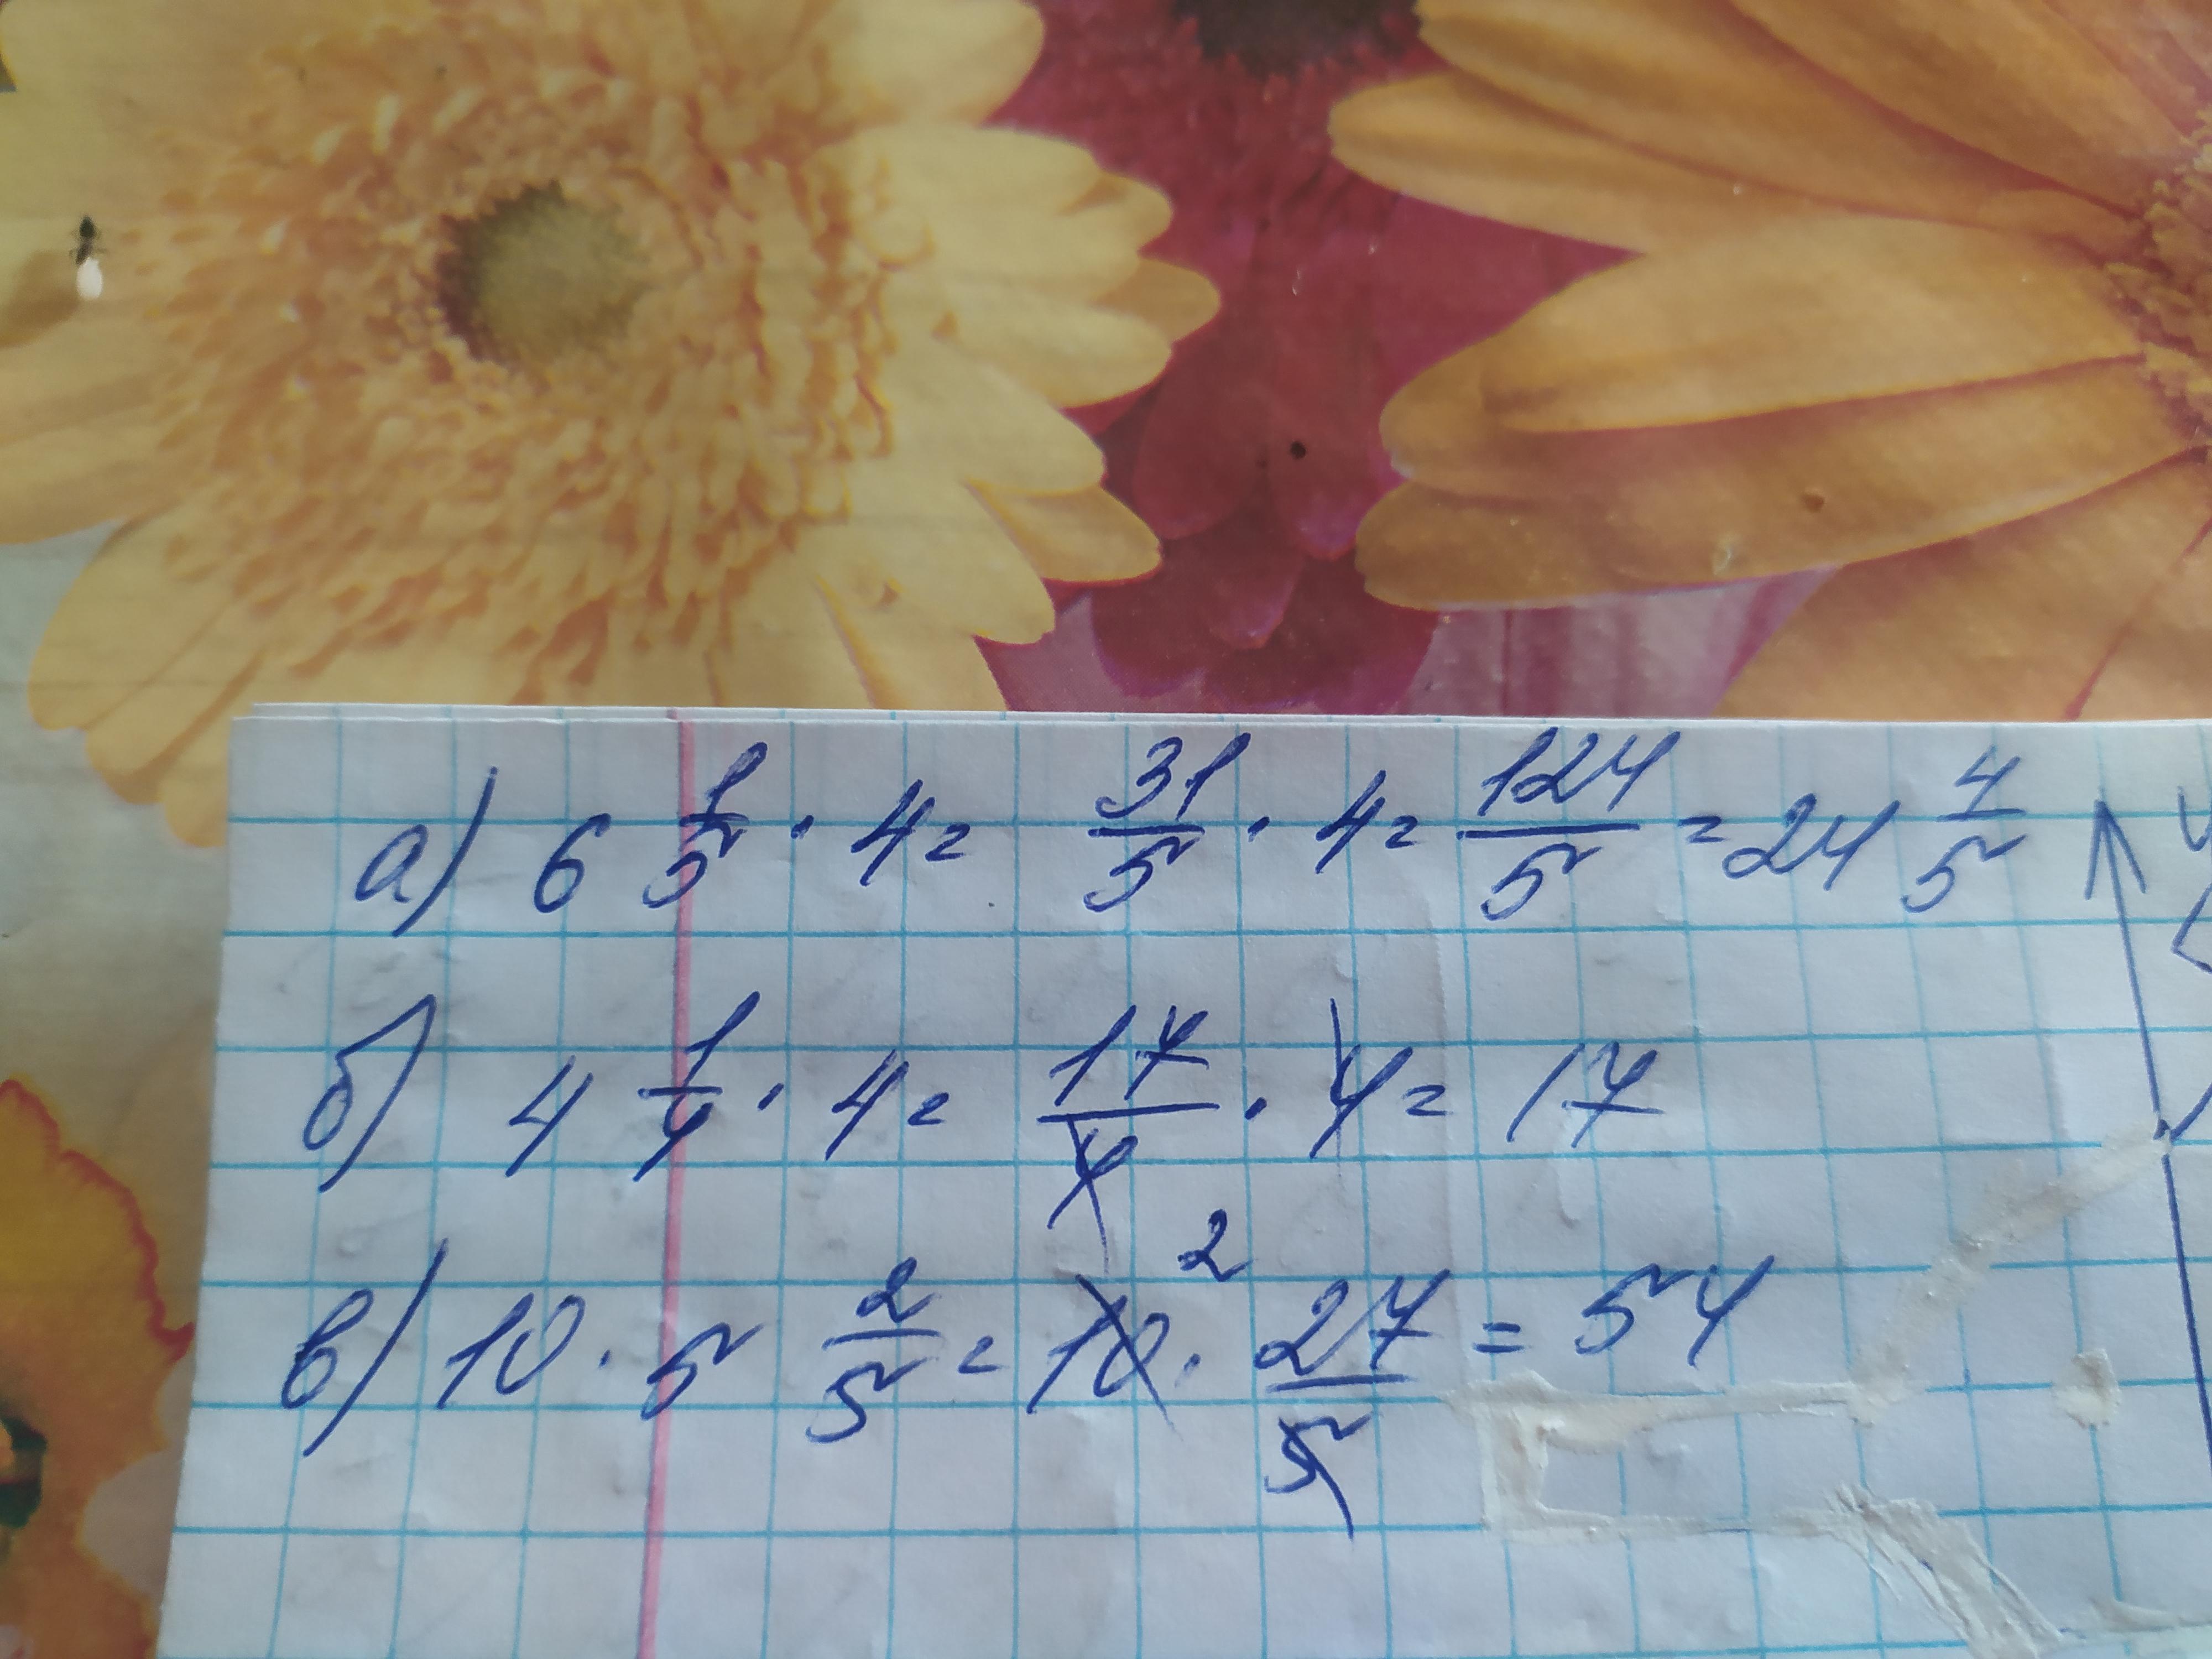 а) 6 1/5 · 4 = 31/5 · 4 = 124/5 = 24 4/5
б) 4 1/4 · 4 = 17/4 · 4 = 17
в) 10 · 5 2/5 = 10 2 · 27/5 = 54